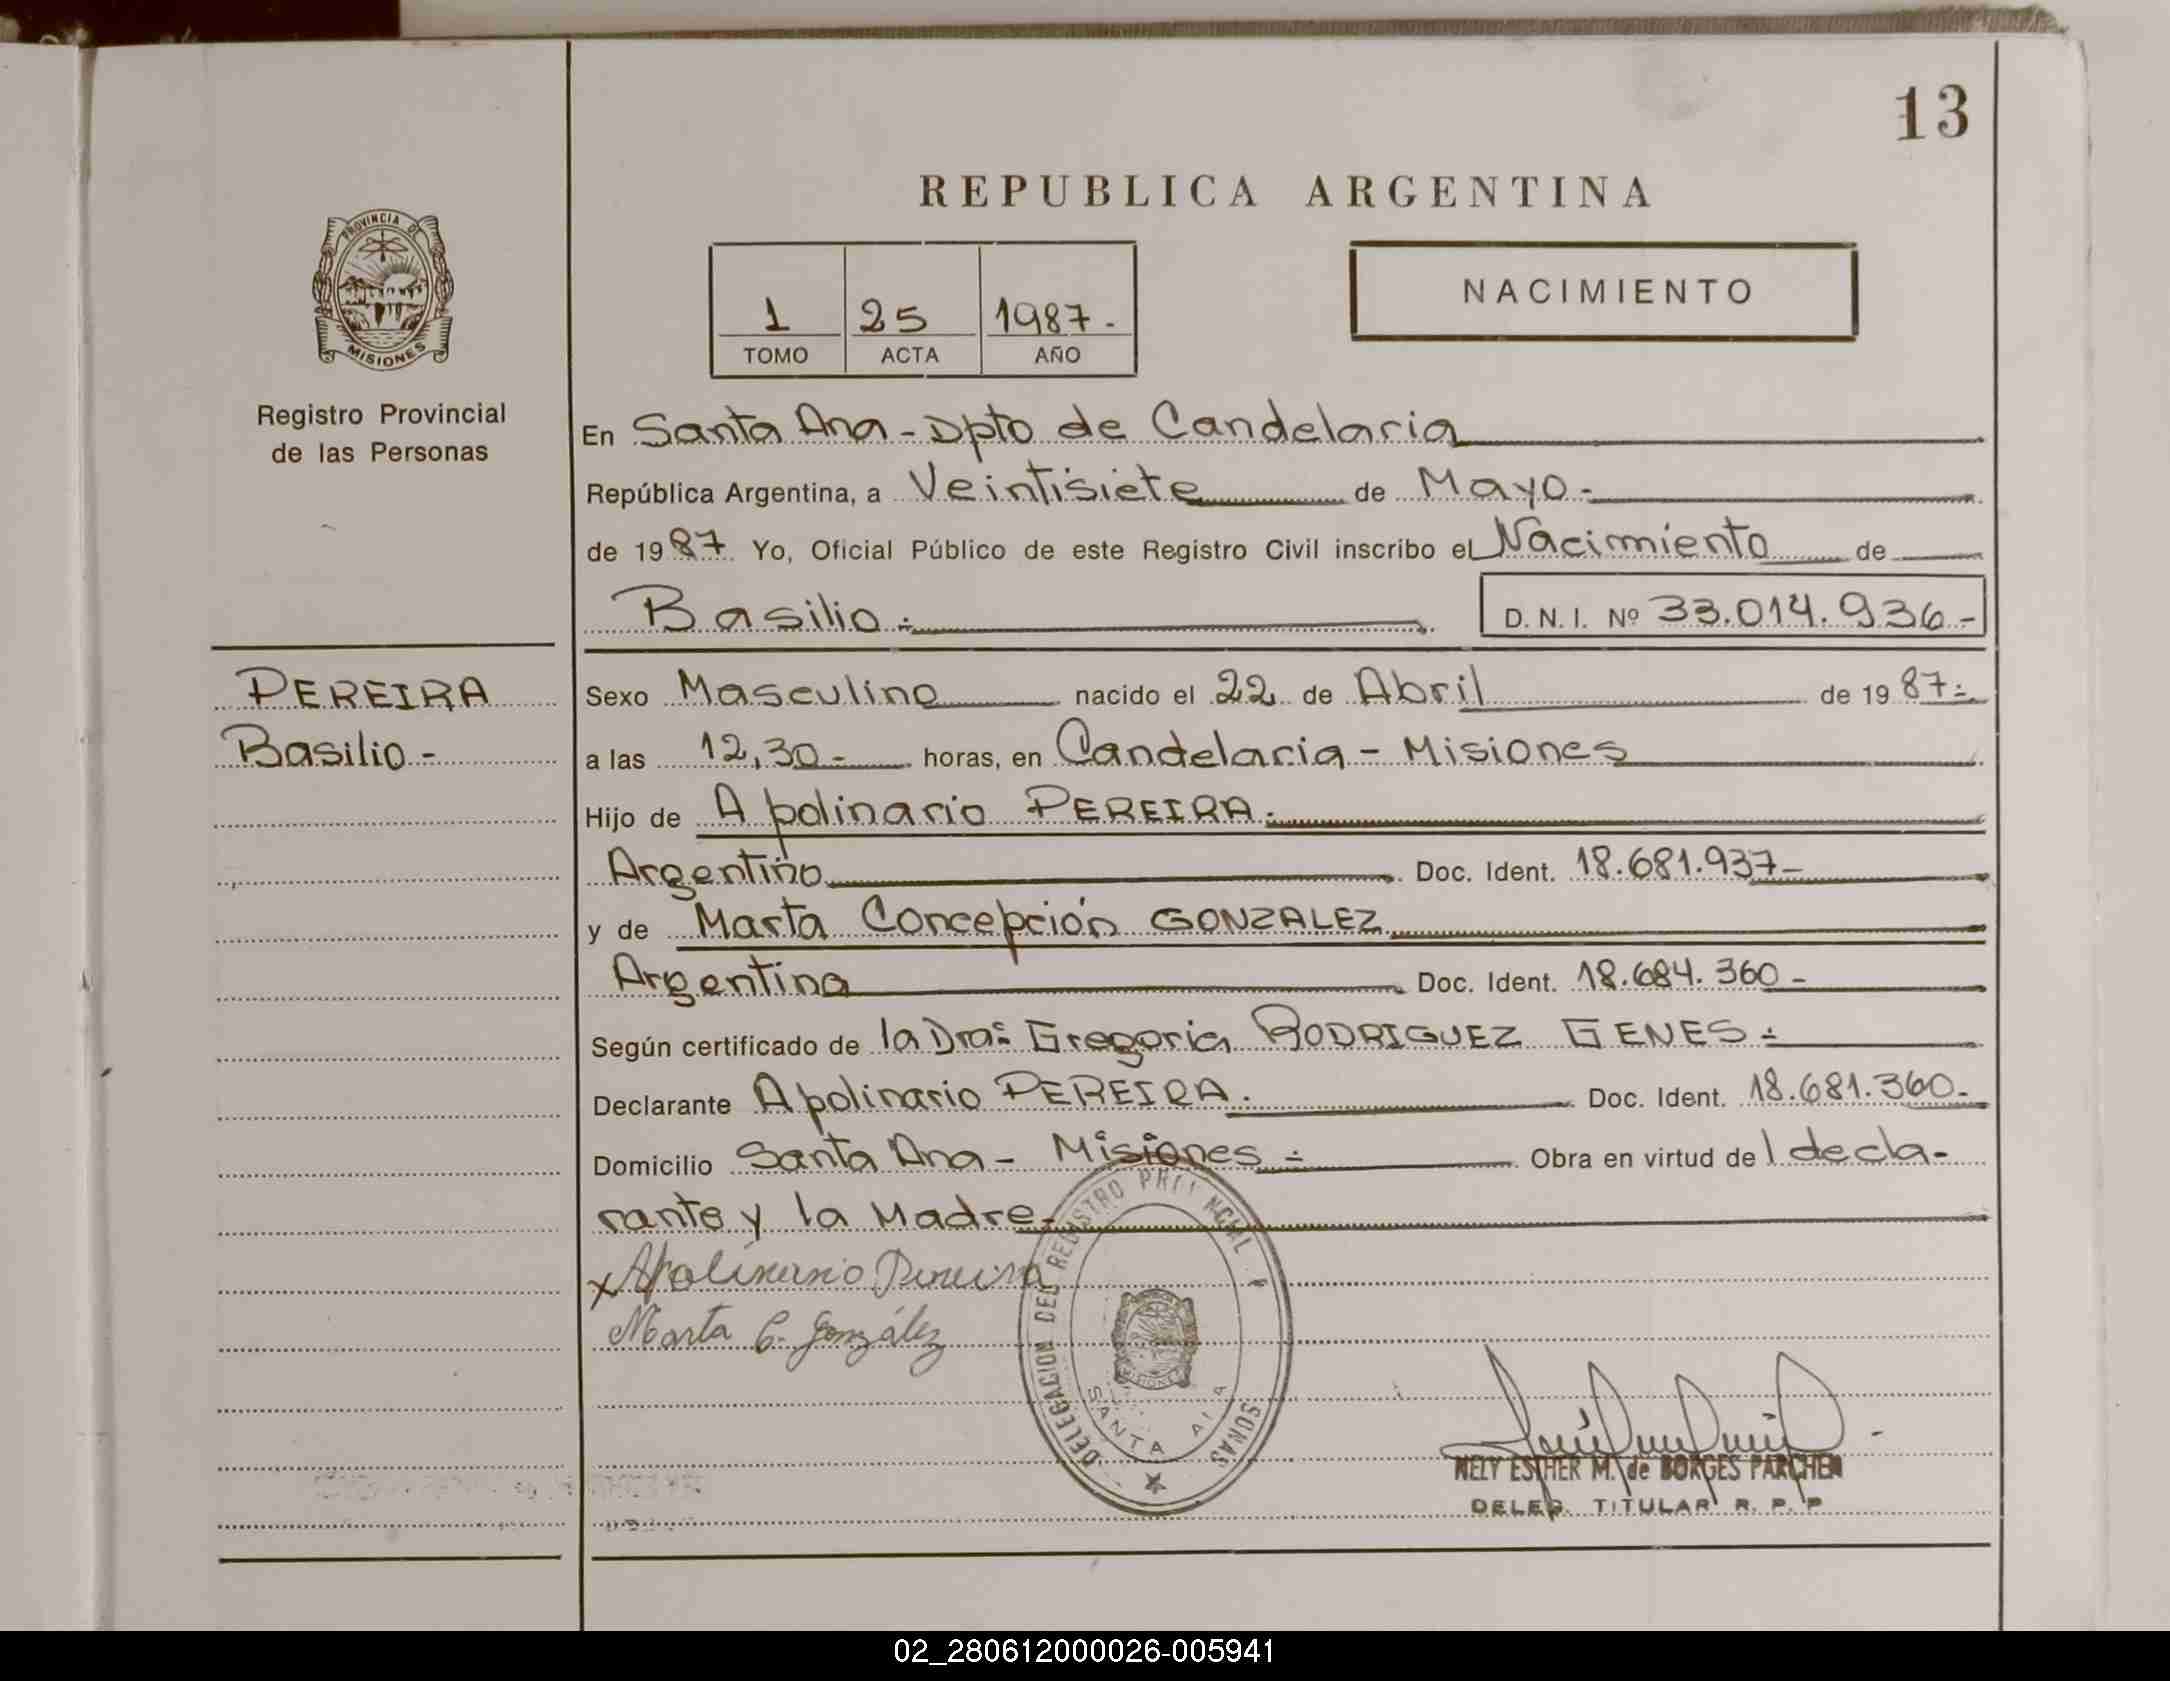 13
REPUBLICA ARGENTINA
PROVINCIA DE
MISIONES
1 25 1987.-
TOMO ACTA AÑO
NACIMIENTO
Registro Provincial
de las Personas
En Santa Ana - Dpto de Candelaria
República Argentina, a Veintisiete de Mayo.-
de 1987. Yo, Oficial Público de este Registro Civil inscribo el Nacimiento de
Basilio.- D. N. I. Nº 33.014.936.-
PEREIRA
Basilio -
Sexo Masculino nacido el 22 de Abril de 1987.-
a las 12,30.- horas, en Candelaria - Misiones
Hijo de Apolinario PEREIRA.-
Argentino Doc. Ident. 18.681.937-
y de Marta Concepción GONZALEZ
Argentina Doc. Ident. 18.684.360-
Según certificado de la Dra: Gregoria RODRIGUEZ GENES.-
Declarante Apolinario PEREIRA. Doc. Ident. 18.681.360.-
Domicilio Santa Ana - Misiones.- Obra en virtud del decla-
rante y la Madre.-
x Apolinario Pereira
Marta C. González
DELEGACION DEL REGISTRO
SANTA
NELY ESTHER M. de BORGES PARCHEN
DELEG. TITULAR R. P. P
02_280612000026-005941